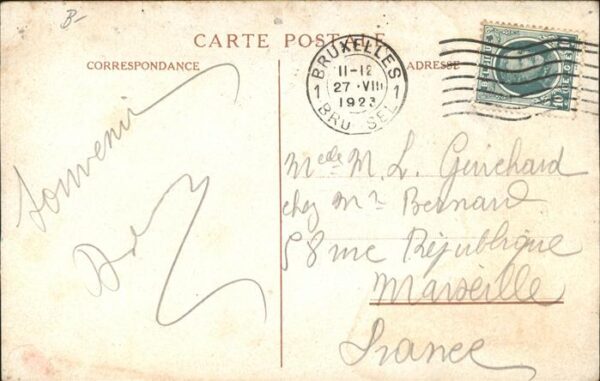 B-
CARTE POSTALE
CORRESPONDANCE
ADRESSE
BRUXELLES
11-12
27 · VIII
1923
1 1
BRUSSEL
Souvenir
M. L. Guichard
chez Mr Bernard
58 rue République
Marseille
France